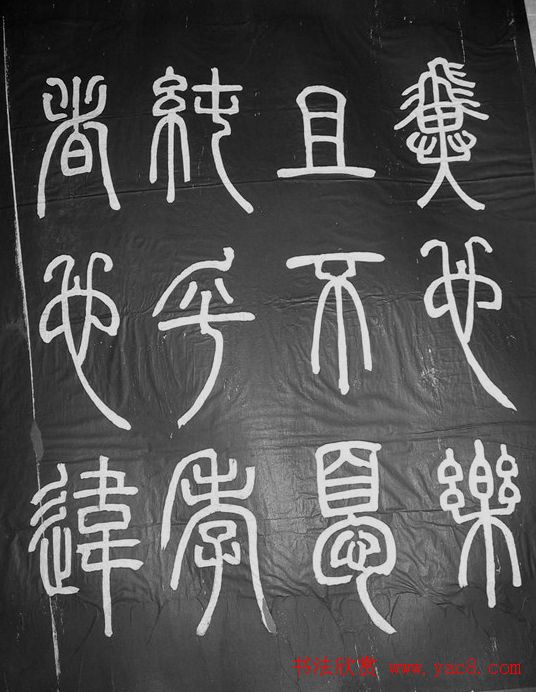 翼也樂
且不憂
純乎孝
者也違
书法欣赏 www.yac8.com